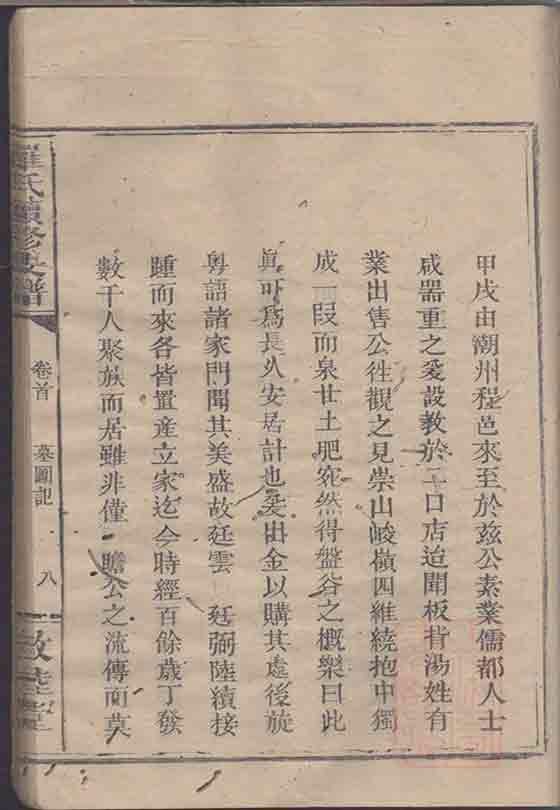 甲戌由潮州程邑來至於茲公素業儒都人士
咸器重之爰設教於二口店迨聞板背湯姓有
業出售公徃觀之見崇山峻嶺四維繞抱中獨
成一段而泉甘土肥宛然得盤谷之概樂曰此
眞可爲長久安居計也爰出金以購其處後旋
粵語諸家門聞其美盛故廷雲 廷弼陸續接
踵而來各皆置產立家迄今時經百餘歲丁發
數千人聚族而居雖非僅 瞻公之流傳而莫
羅氏續修支譜
卷首 墓圖記 八
敦睦堂